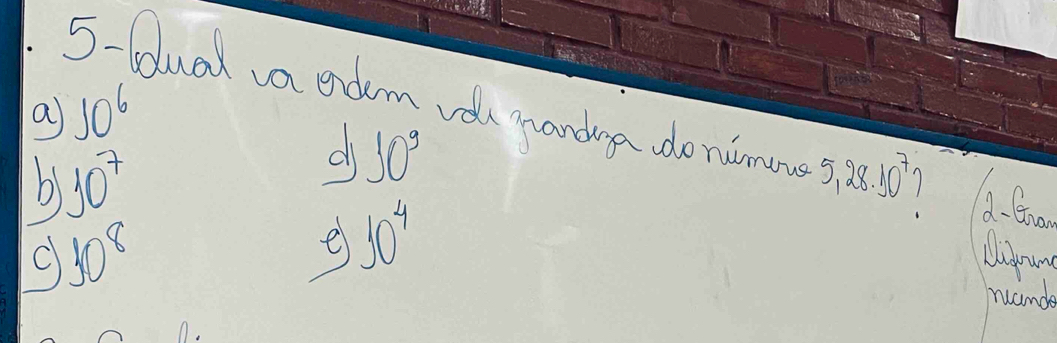 5-Qual a ordem de grandeza do número 5,28.10⁷?
a) 10⁶
b) 10⁷
c) 10⁸
d) 10⁹
e) 10⁴
2-Gran